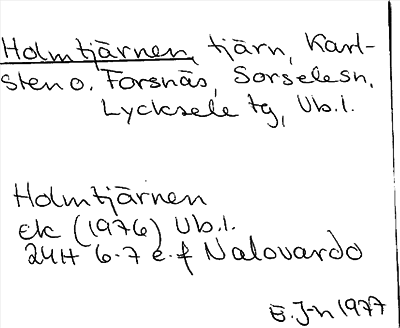 Holmtjärnen, tjärn, Karl-
sten o. Forsnäs, Sorselesn,
Lycksele tg, Vb.l.
Holmtjärnen
ek (1976) Vb.l.
24H 6-7 e.f Nalovardo
E.J-n 1977